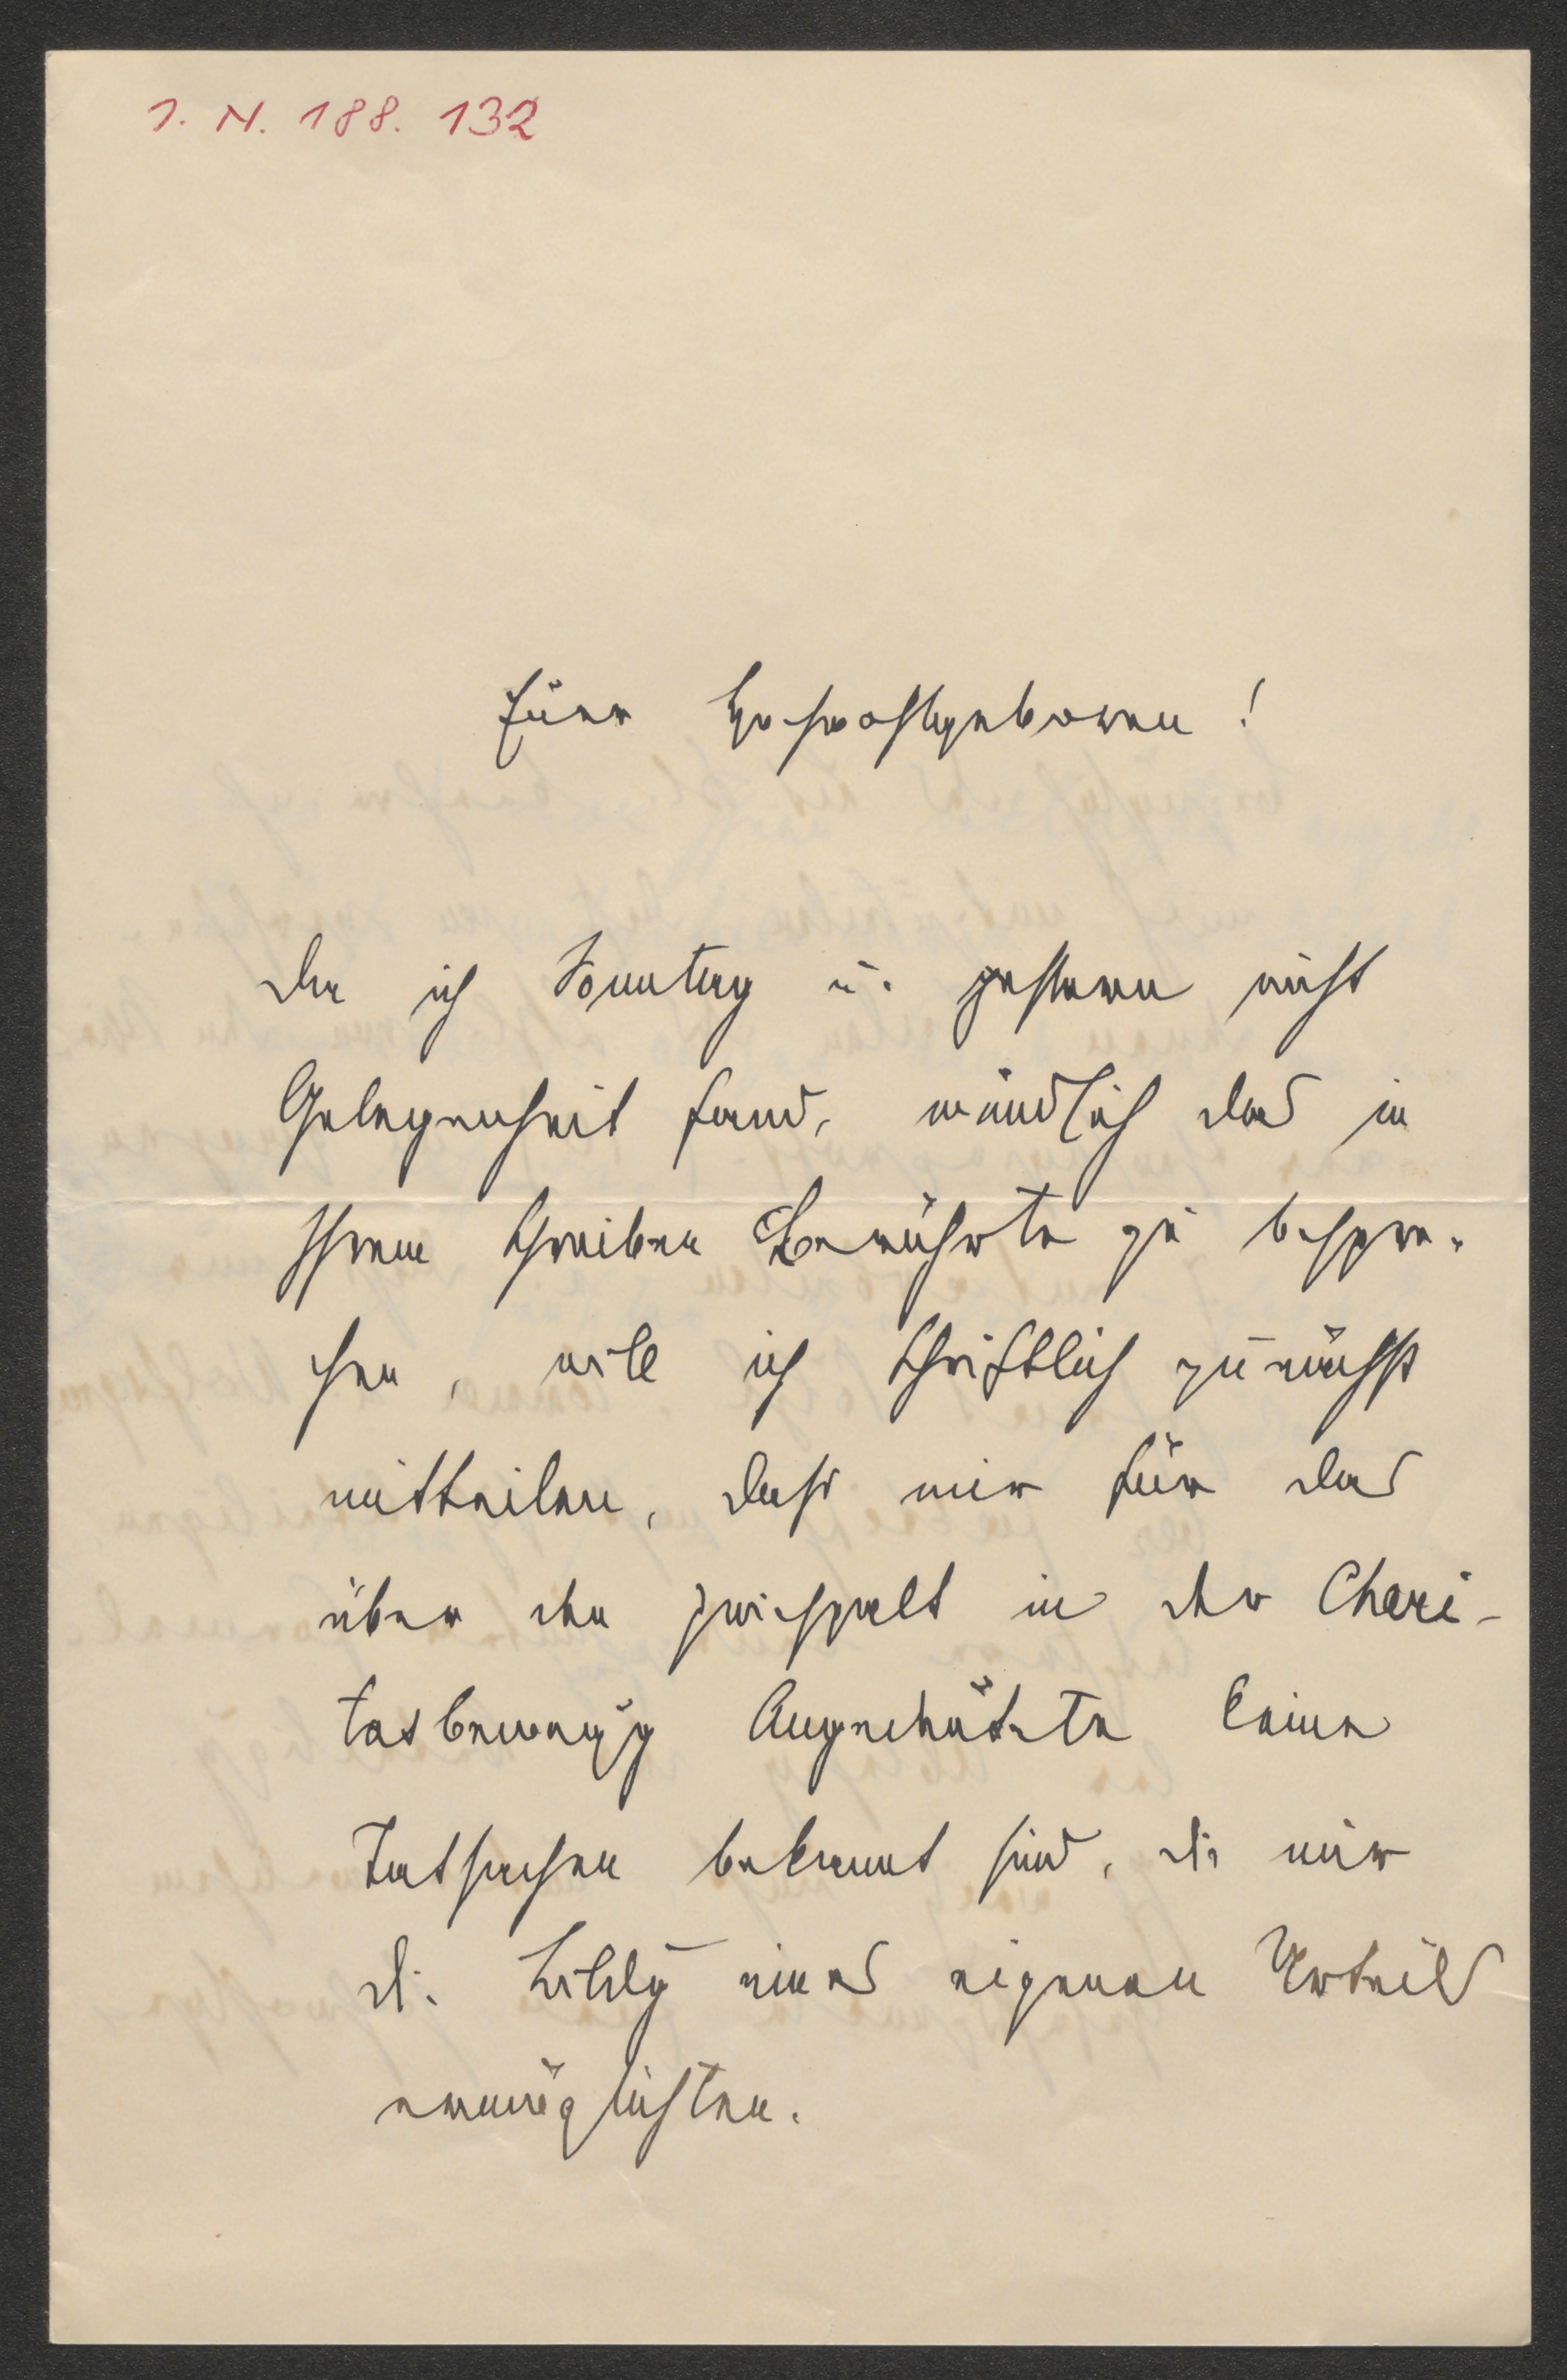 I. N. 188. 132
Euer Hochwohlgeboren!
Da ich Sonntag u. gestern nicht
Gelegenheit fand, mündlich das in
Ihrem Schreiben Berührte zu bespre-
chen, will ich schriftlich zunächst
mitteilen, dass mir für das
über den Zwiespalt in der Chari-
tasbewegg Angedeutete keine
Tatsachen bekannt sind, die mir
die Bildg eines eigenen Urteils
ermöglichten.